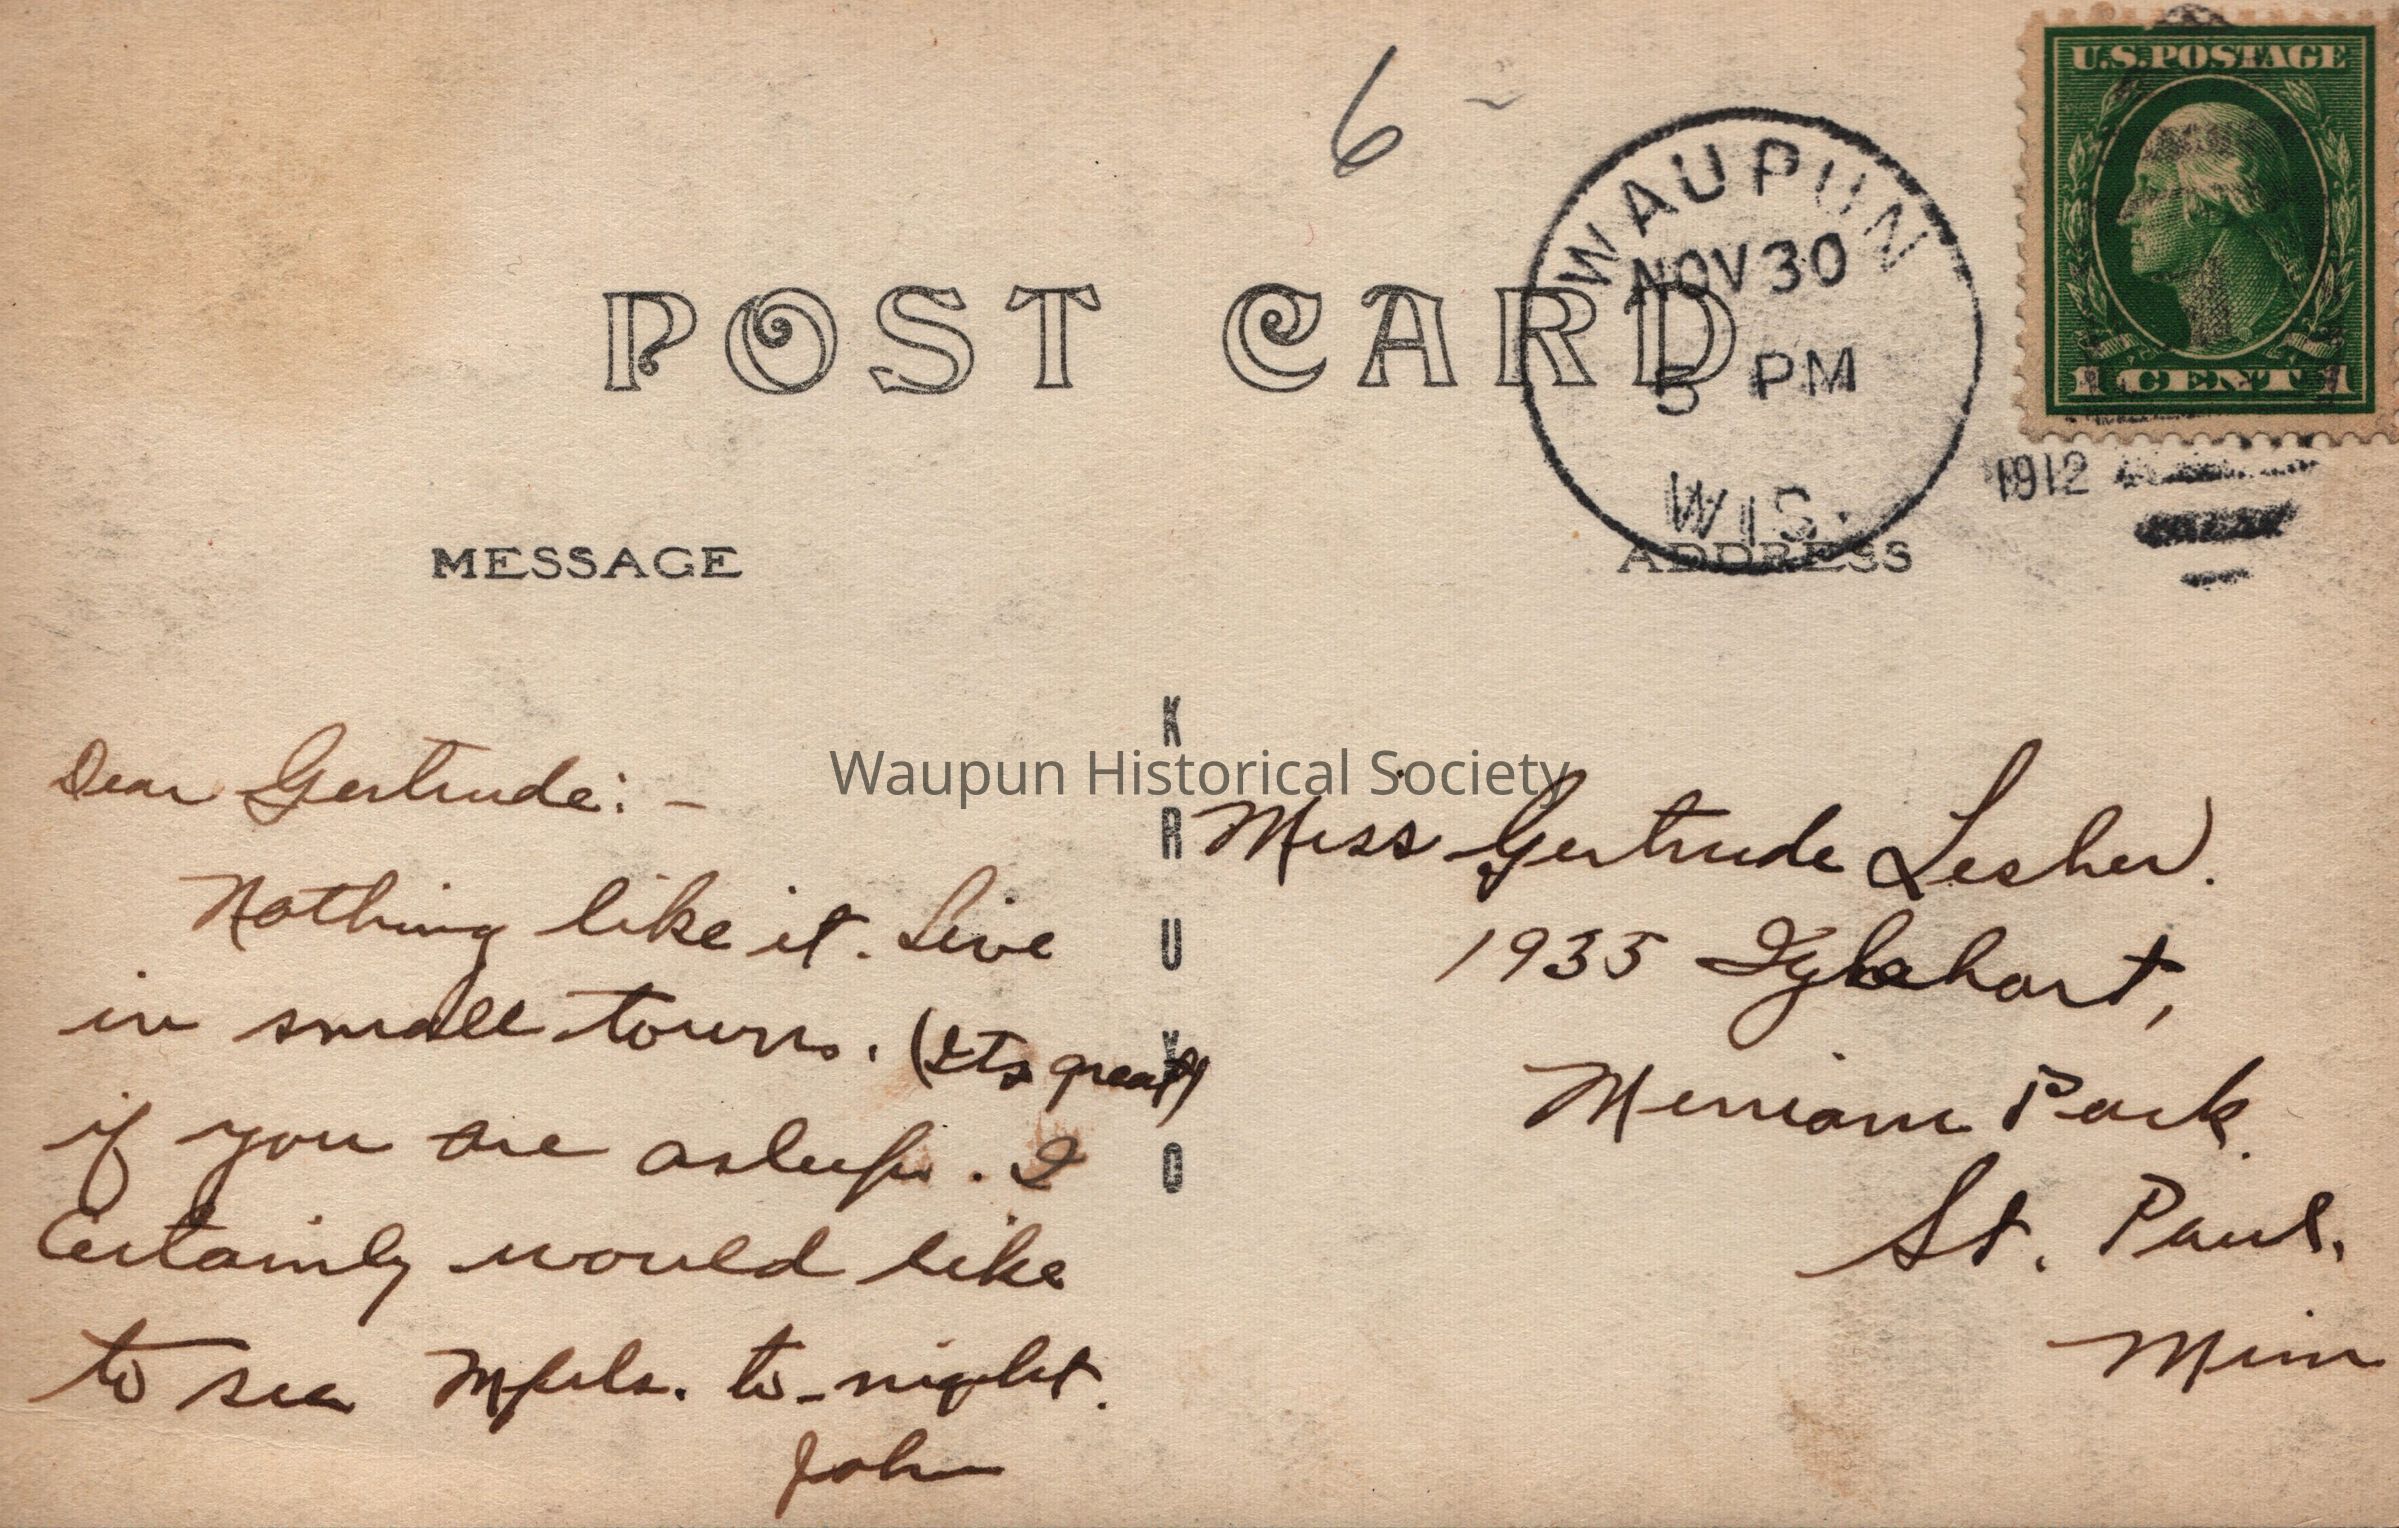 6
U.S. POSTAGE
1 CENT 1
WAUPUN
NOV 30
5 PM
WIS.
1912
POST CARD
MESSAGE
ADDRESS
KRUXO
Waupun Historical Society
Dear Gertrude: -
Nothing like it. Live
in small towns. (Its great)
if you are asleep. I
Certainly would like
to see Mpls. to-night.
John
Miss Gertrude Lesher.
1935 Iglehart,
Merriam Park.
St. Paul.
Minn